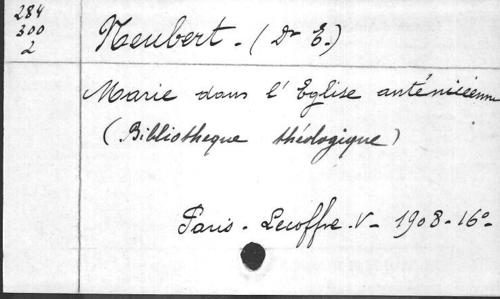 284
300
2
Neubert. (Dr E.)
Marie dans l'Eglise anténicéenne
(Bibliotheque théologique)
Paris. Lecoffre. V- 1908- 16°-